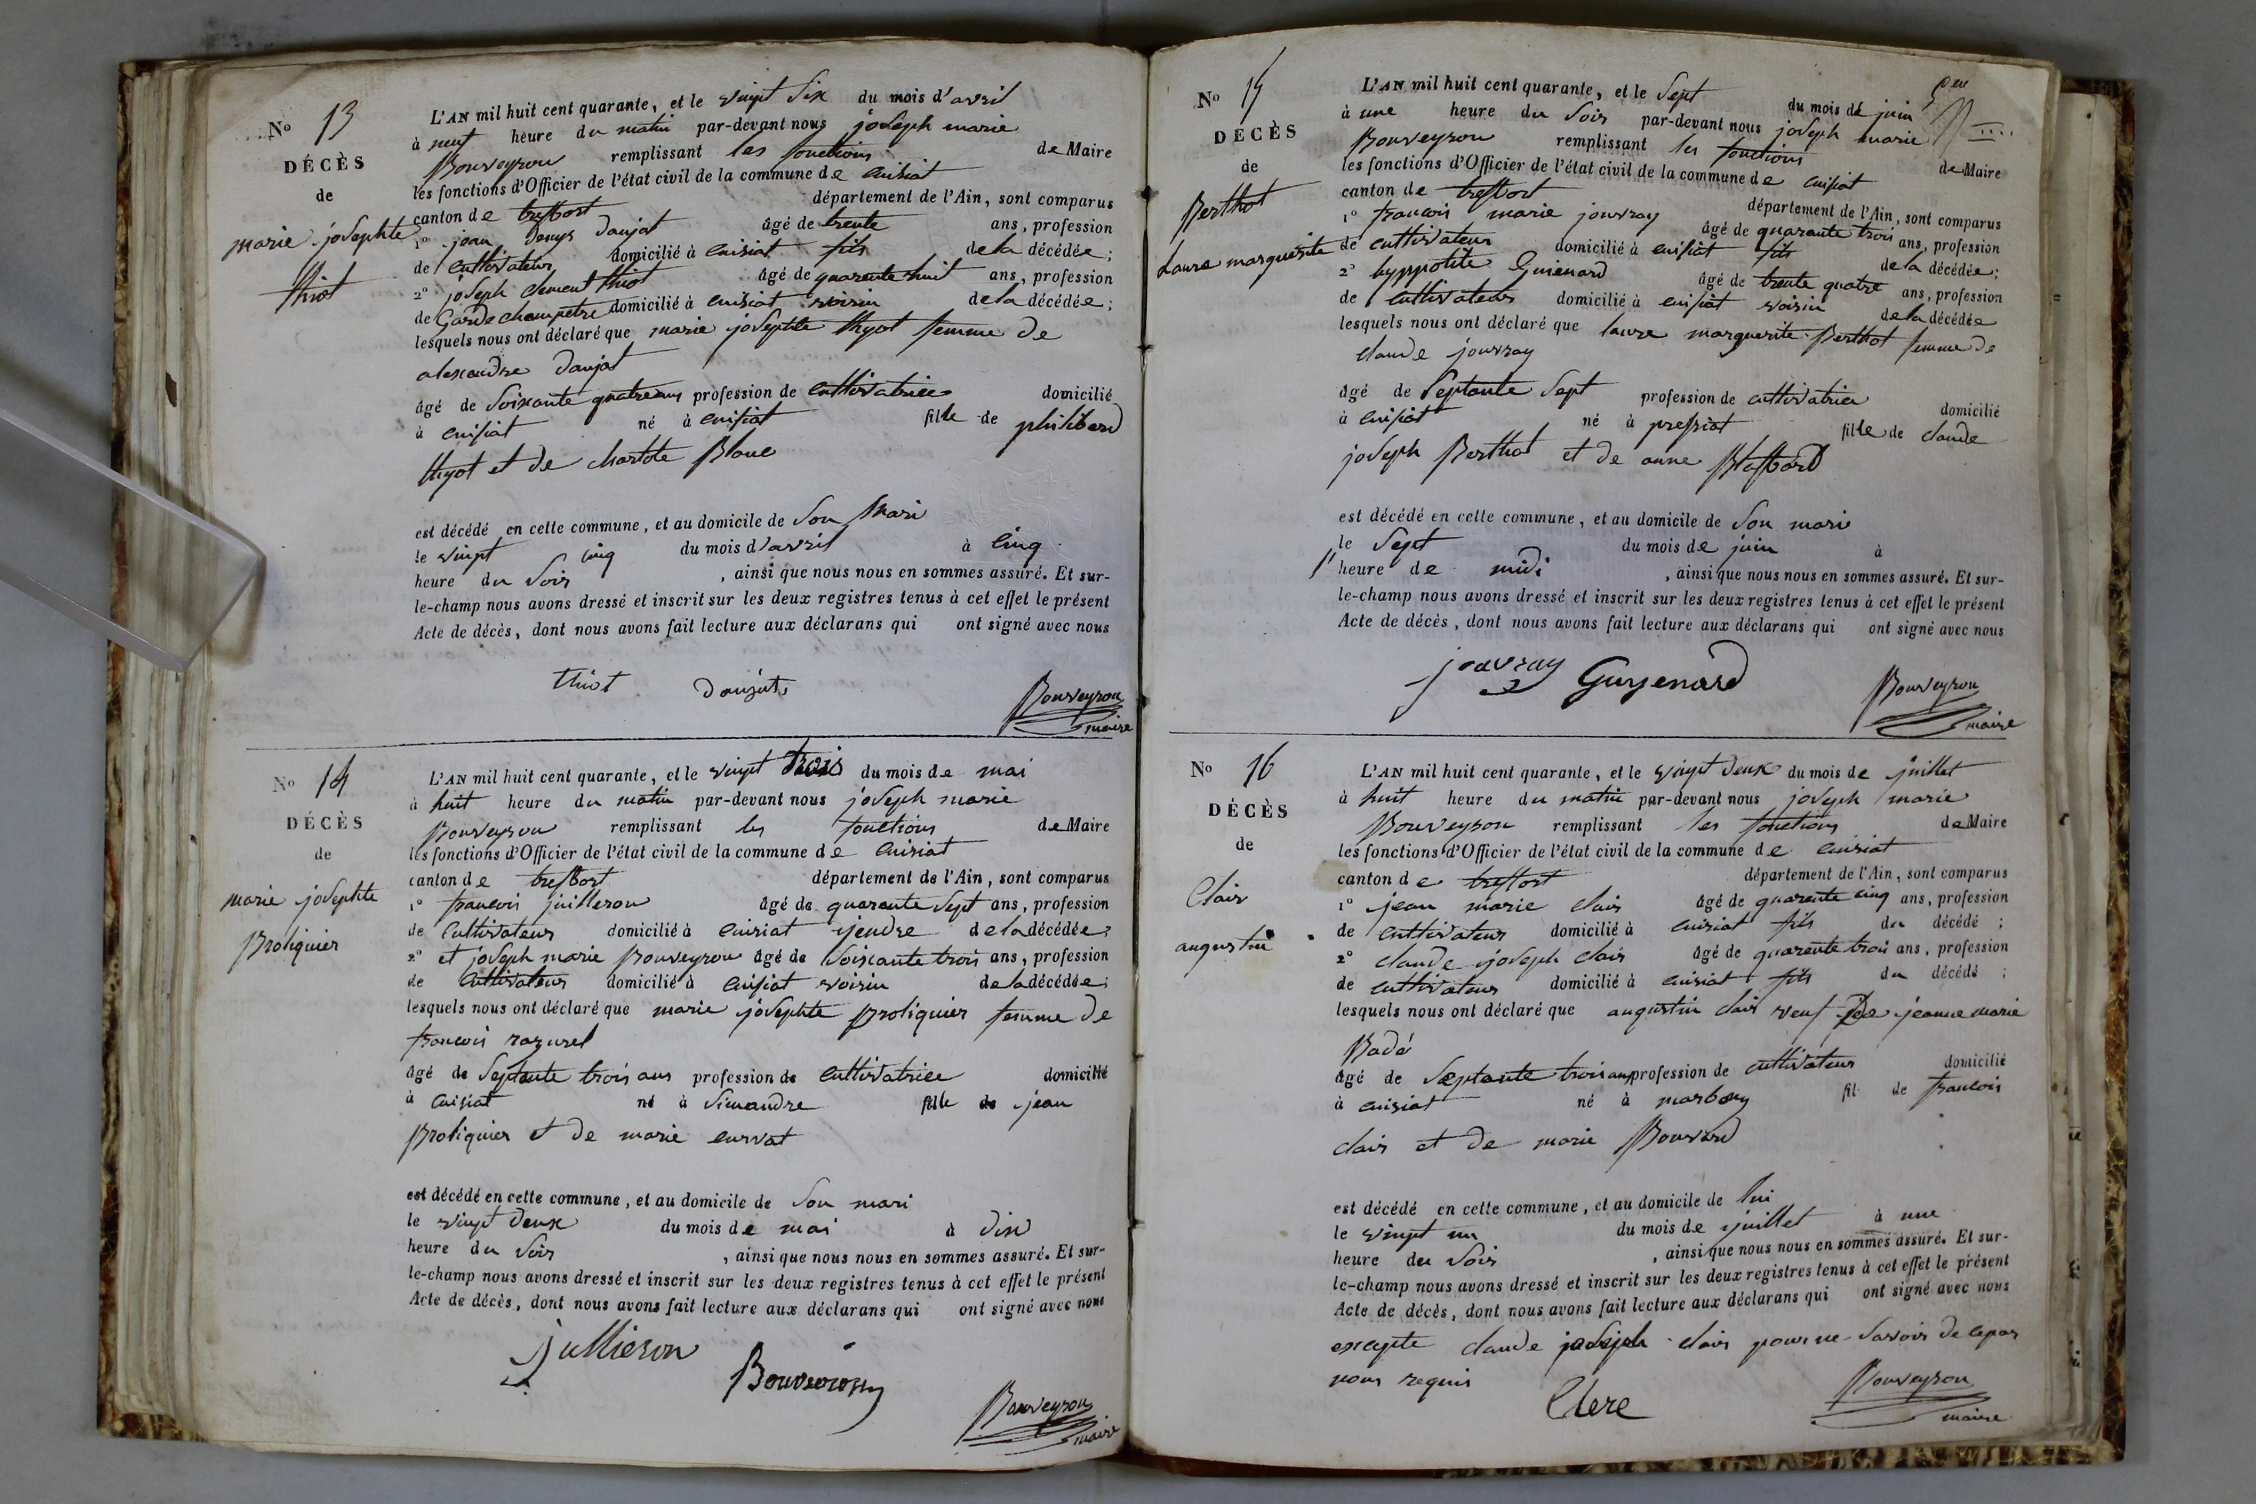 No 13
DÉCÈS
de
marie josephte
thiot
L'AN mil huit cent quarante, et le vingt six du mois d'avril
à neuf heure du matin par-devant nous joseph marie
Bouveyron remplissant les fonctions de Maire
les fonctions d'Officier de l'état civil de la commune de cuisiat
canton de treffort département de l'Ain, sont comparus
1° jean denys daujat âgé de trente ans, profession
de Cultivateur domicilié à cuisiat fils de la décédée;
2° joseph clement thiot âgé de quarente huit ans, profession
de Garde champetre domicilié à cuisiat voisin de la décédée;
lesquels nous ont déclaré que marie josephte thyot femme de
alexandre daujat
âgé de soixante quatre ans profession de cultivatrice domicilié
à cuisiat né à cuisiat fille de philibard
thyot et de charlote Blanc
est décédé en cette commune, et au domicile de son mari
le vingt cinq du mois d'avril à cinq
heure du soir, ainsi que nous nous en sommes assuré. Et sur-
le-champ nous avons dressé et inscrit sur les deux registres tenus à cet effet le présent
Acte de décès, dont nous avons fait lecture aux déclarans qui ont signé avec nous
thiot daujat Bouveyron
maire
No 14
DÉCÈS
de
marie josephte
Proliquier
L'AN mil huit cent quarante, et le vingt trois du mois de mai
à huit heure du matin par-devant nous joseph marie
Bouveyron remplissant les fonctions de Maire
les fonctions d'Officier de l'état civil de la commune de cuisiat
canton de treffort département de l'Ain, sont comparus
1° francois juilleron âgé de quarante sept ans, profession
de Cultivateur domicilié à cuisiat jendre de la décédée;
2° et joseph marie Bouveyron âgé de soixante trois ans, profession
de Cultivateur domicilié à cuisiat voisin de la décédée;
lesquels nous ont déclaré que marie josephte proliquier femme de
francois razurel
âgé de septente trois ans profession de cultivatrice domicilié
à cuisiat né à simandre fille de jean
Proliquier et de marie curvat
est décédé en cette commune, et au domicile de son mari
le vingt deux du mois de mai à dix
heure du soir, ainsi que nous nous en sommes assuré. Et sur-
le-champ nous avons dressé et inscrit sur les deux registres tenus à cet effet le présent
Acte de décès, dont nous avons fait lecture aux déclarans qui ont signé avec nous
jullieron
Bouveyron
maire
No 15
DÉCÈS
de
Berthot
Laure marguerite
L'AN mil huit cent quarante, et le sept du mois de juin
à une heure du soir par-devant nous joseph marie
Bouveyron remplissant les fonctions de Maire
les fonctions d'Officier de l'état civil de la commune de cuisiat
canton de treffort département de l'Ain, sont comparus
1° francois marie jouvray âgé de quarante trois ans, profession
de cultivateur domicilié à cuisiat fils de la décédée;
2° hyppolite Guienard âgé de trente quatre ans, profession
de cultivateur domicilié à cuisiat voisin de la décédée
lesquels nous ont déclaré que laure marguerite Berthot femme de
claude jouvray
âgé de septante sept profession de cultivatrice domicilié
à cuisiat né à pressiat fille de claude
joseph Berthot et de anne Blaffard
est décédé en cette commune, et au domicile de son mari
le sept du mois de juin à
heure de midi, ainsi que nous nous en sommes assuré. Et sur-
le-champ nous avons dressé et inscrit sur les deux registres tenus à cet effet le présent
Acte de décès, dont nous avons fait lecture aux déclarans qui ont signé avec nous
jouvray Guyenard Bouveyron
maire
No 16
DÉCÈS
de
Clair
augustin
L'AN mil huit cent quarante, et le vingt deux du mois de juillet
à huit heure du matin par-devant nous joseph marie
Bouveyron remplissant les fonctions de Maire
les fonctions d'Officier de l'état civil de la commune de cuisiat
canton de treffort département de l'Ain, sont comparus
1° jean marie clair âgé de quarente cinq ans, profession
de cultivateur domicilié à cuisiat fils du décédé;
2° claude joseph clair âgé de quarente trois ans, profession
de cultivateur domicilié à cuisiat fils du décédé;
lesquels nous ont déclaré que augustin clair veuf de jeanne marie
Badé
âgé de septante trois ans profession de cultivateur domicilié
à cuisiat né à marboz fil de francois
clair et de marie Bouvard
est décédé en cette commune, et au domicile de lui
le vingt un du mois de juillet à une
heure du soir, ainsi que nous nous en sommes assuré. Et sur-
le-champ nous avons dressé et inscrit sur les deux registres tenus à cet effet le présent
Acte de décès, dont nous avons fait lecture aux déclarans qui ont signé avec nous
excepte claude joseph clair pour ne savoir de ce par
nous requis
Clere Bouveyron
maire